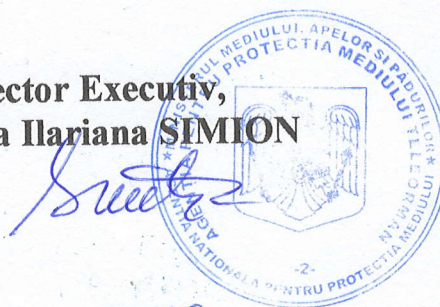 ector Executiv,
a Ilariana SIMION
*MINISTERUL MEDIULUI, APELOR ȘI PĂDURILOR*
AGENȚIA NAȚIONALĂ PENTRU PROTECȚIA MEDIULUI
AGENȚIA PENTRU PROTECȚIA MEDIULUI TELEORMAN
-2-